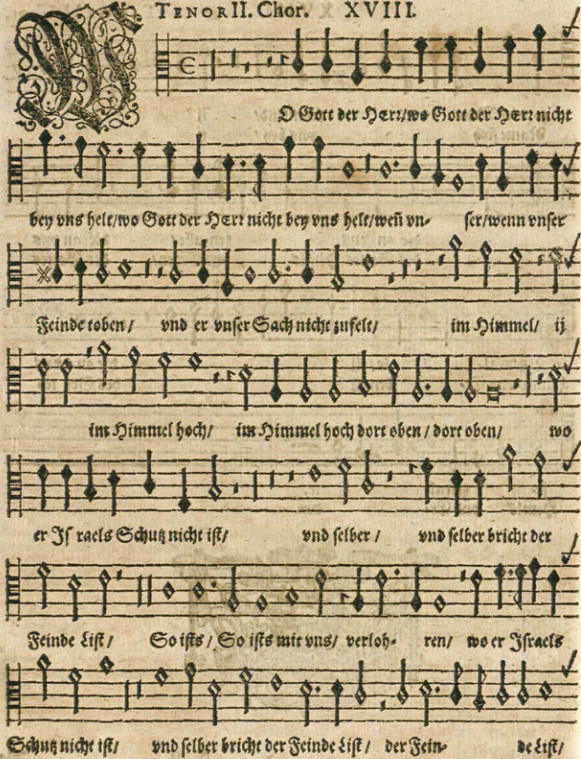 TENOR II. Chor. XVIII.
WO Gott der HErr/wo Gott der HErr nicht
bey vns helt/wo Gott der HErr nicht bey vns helt/weñ vn- ser/wenn vnser
Feinde toben/ vnd er vnser Sach nicht zufelt/ im Himmel/ ij
im Himmel hoch/ im Himmel hoch dort oben/dort oben/ wo
er Jsraels Schutz nicht ist/ vnd selber/ vnd selber bricht der
Feinde List/ So ists/So ists mit vns/ verloh- ren/ wo er Jsraels
Schutz nicht ist/ vnd selber bricht der Feinde List/ der Fein- de List/